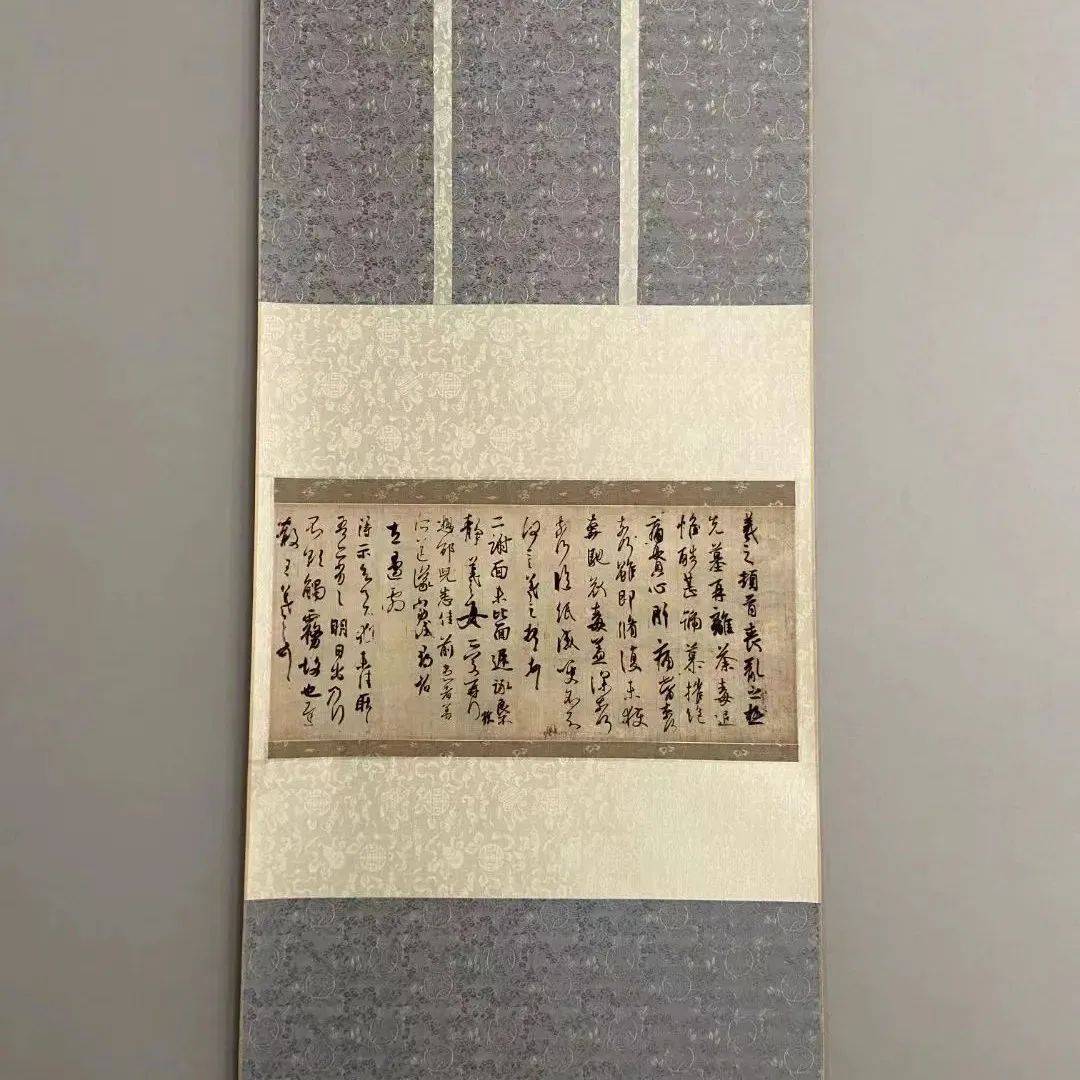 羲之頓首喪亂之極
先墓再離荼毒追
惟酷甚號慕摧絕
痛貫心肝痛當奈何
奈何雖即脩復未獲
奔馳哀毒益深奈何
奈何臨紙感哽不知
何言羲之頓首頓首
二謝面未比面遲詠
靜羲之女愛再拜
想邵兒悉佳前患者善
所送議當試尋省
左邊劇
得示知足下猶未佳耿耿
吾亦劣劣明日出乃行
不欲觸霧故也遲
散王羲之頓首